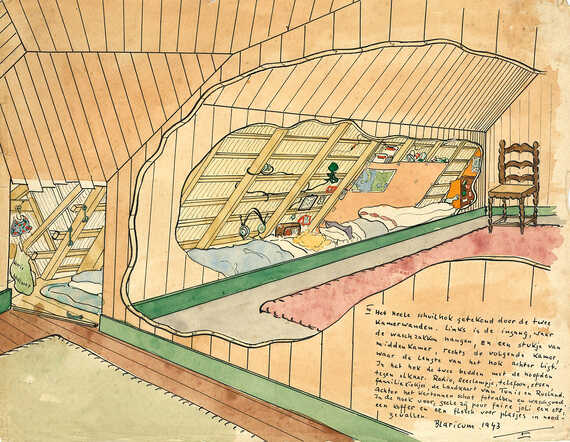 II Het heele schuilhok getekend door de twee
kamerwanden. Links is de ingang, waar
de waschzakken hangen en een stukje van
middenkamer, rechts de volgende kamer,
waar de lengte van het hok achter ligt.
In het hok de twee bedden met de hoofden
tegen elkaar. Radio, leeslampje, telefoon, eten,
familiekiekjes de Landkaart van Tunis en Rusland.
Achter het kartonnen schot fotoalbum en waschgoed.
In de hoek voor, gele
een koffer en een flesch voor plasjes in nood-
gevallen. Blaricum 1943
II